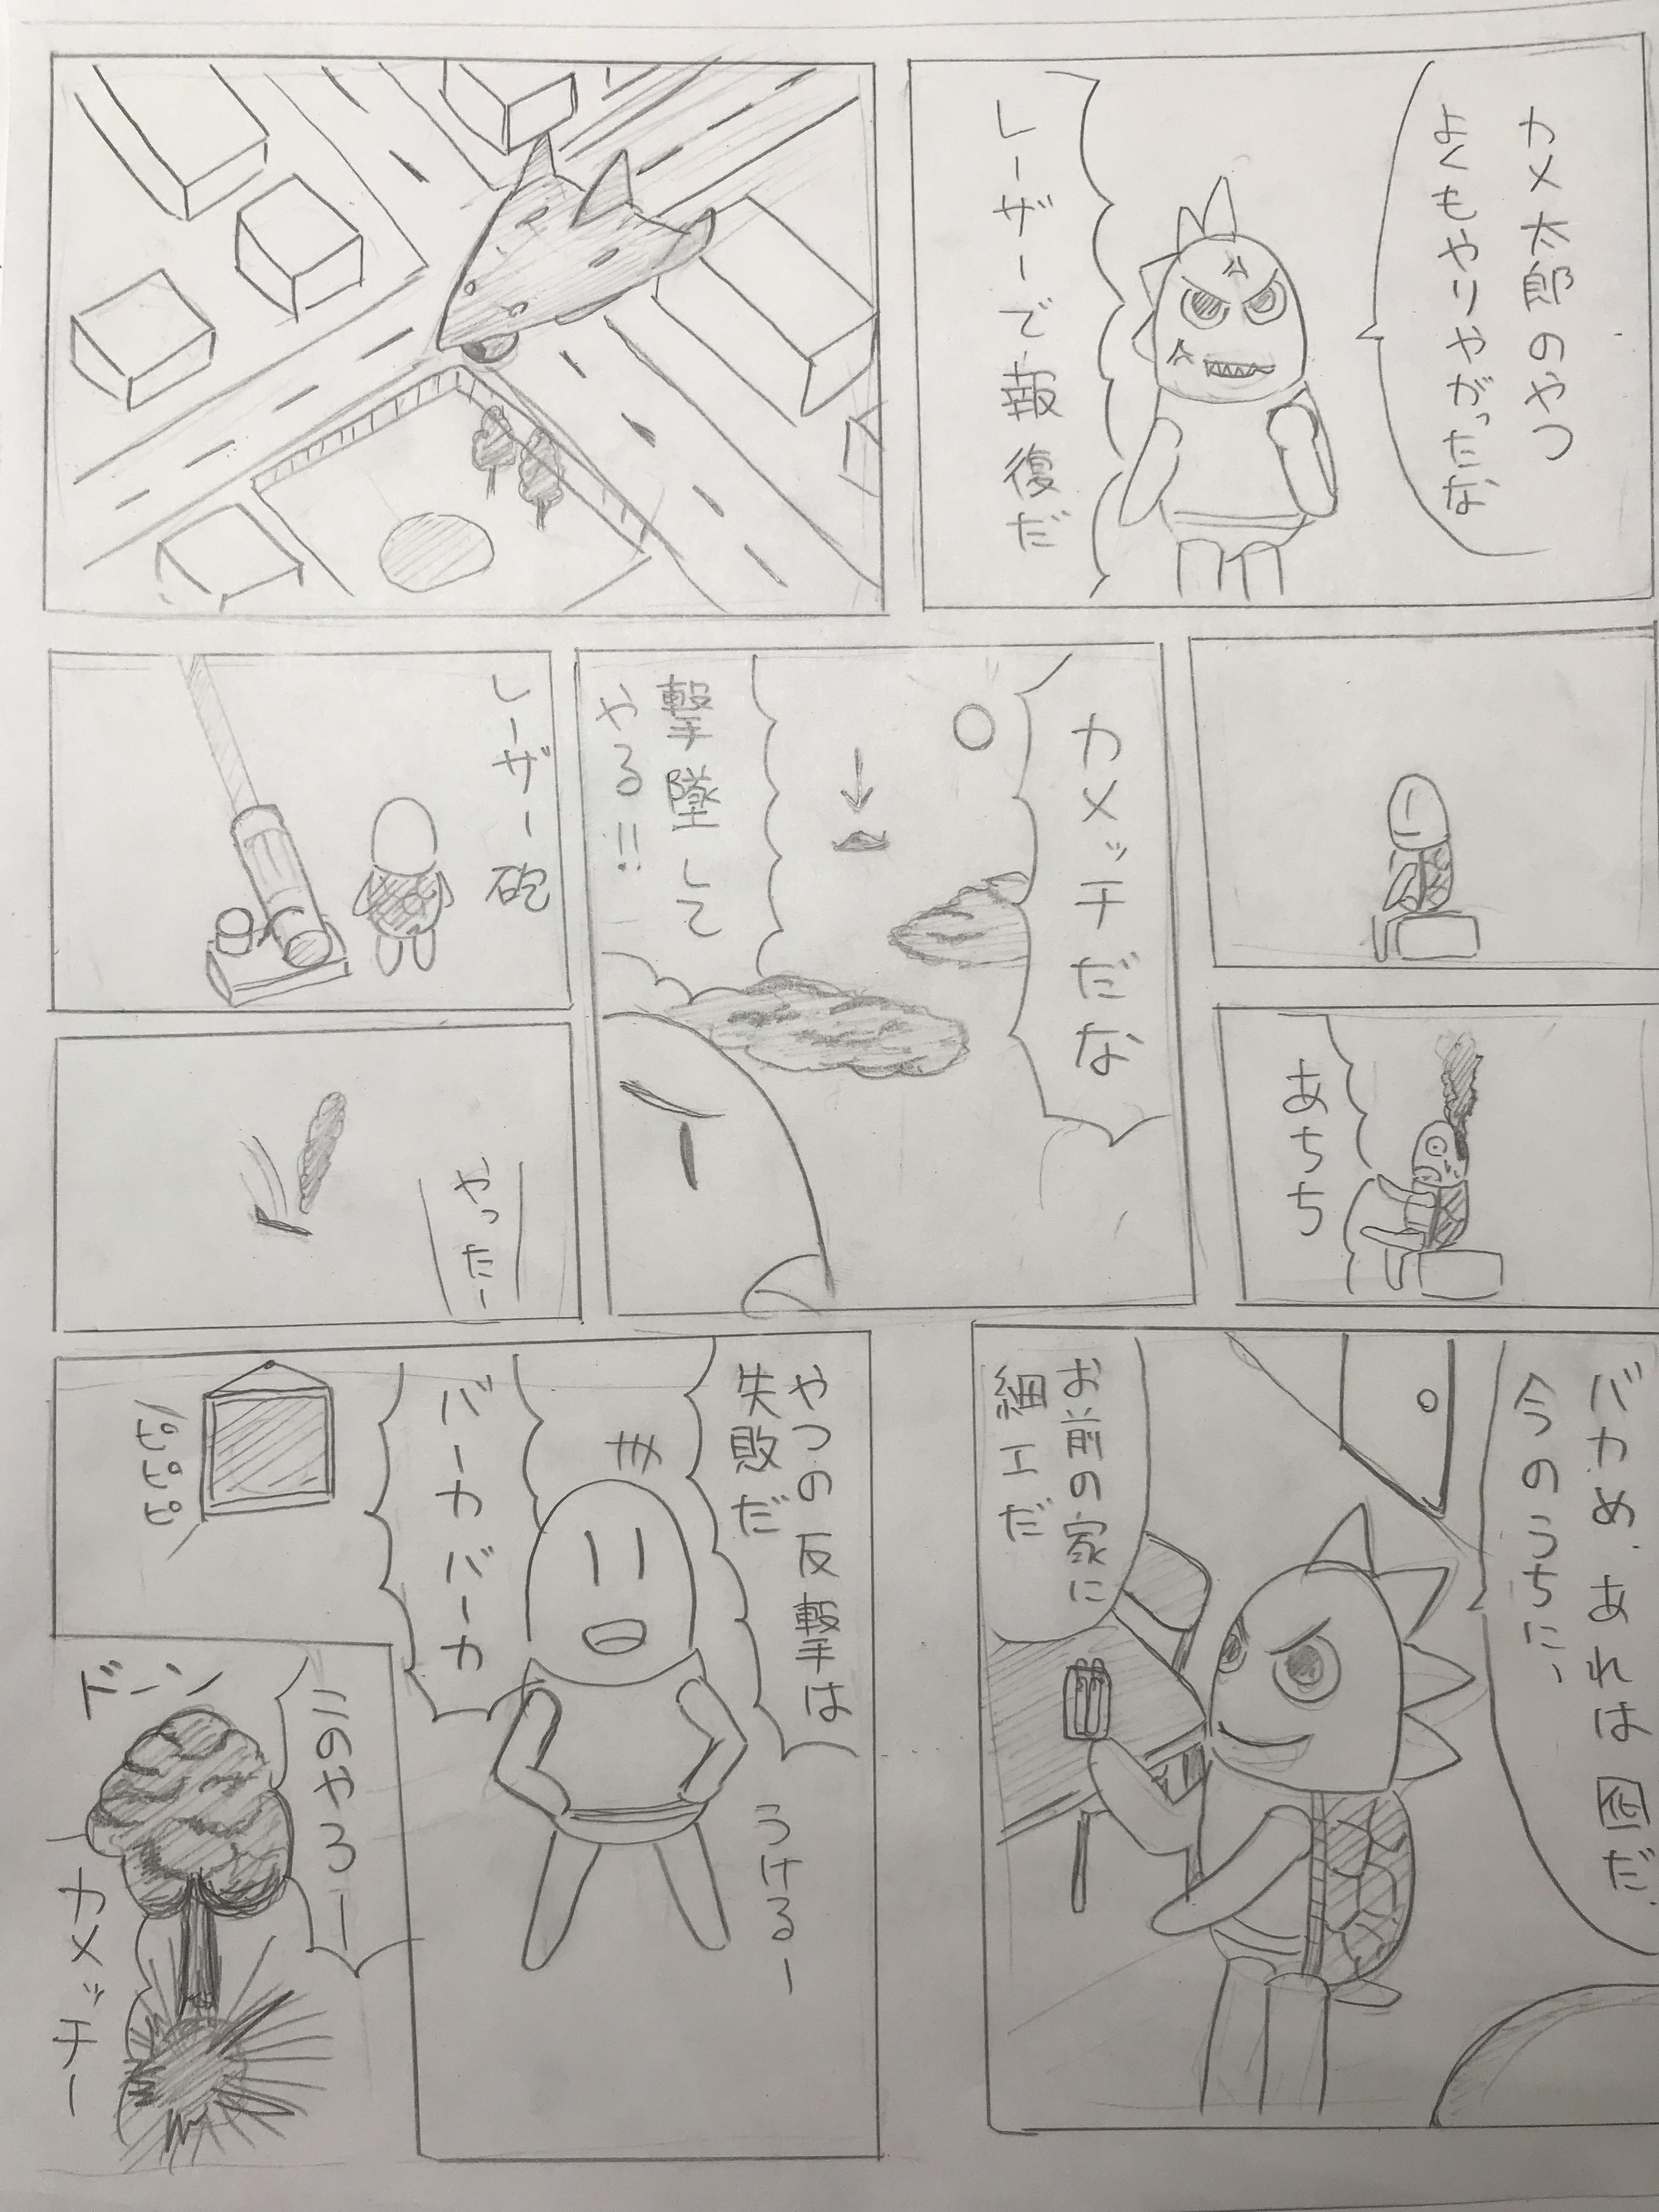 カメ太郎のやつ
よくもやりやがったな
レーザーで報復だ
あちち
カメッチだな
撃墜して
やる!!
レーザー砲
やったー
バカめ、あれは囮だ、
今のうちに、
お前の家に
細工だ
やつの反撃は
失敗だ
うけるー
バーカバーカ
ピピピ
このやろー
ドーン
カメッチー